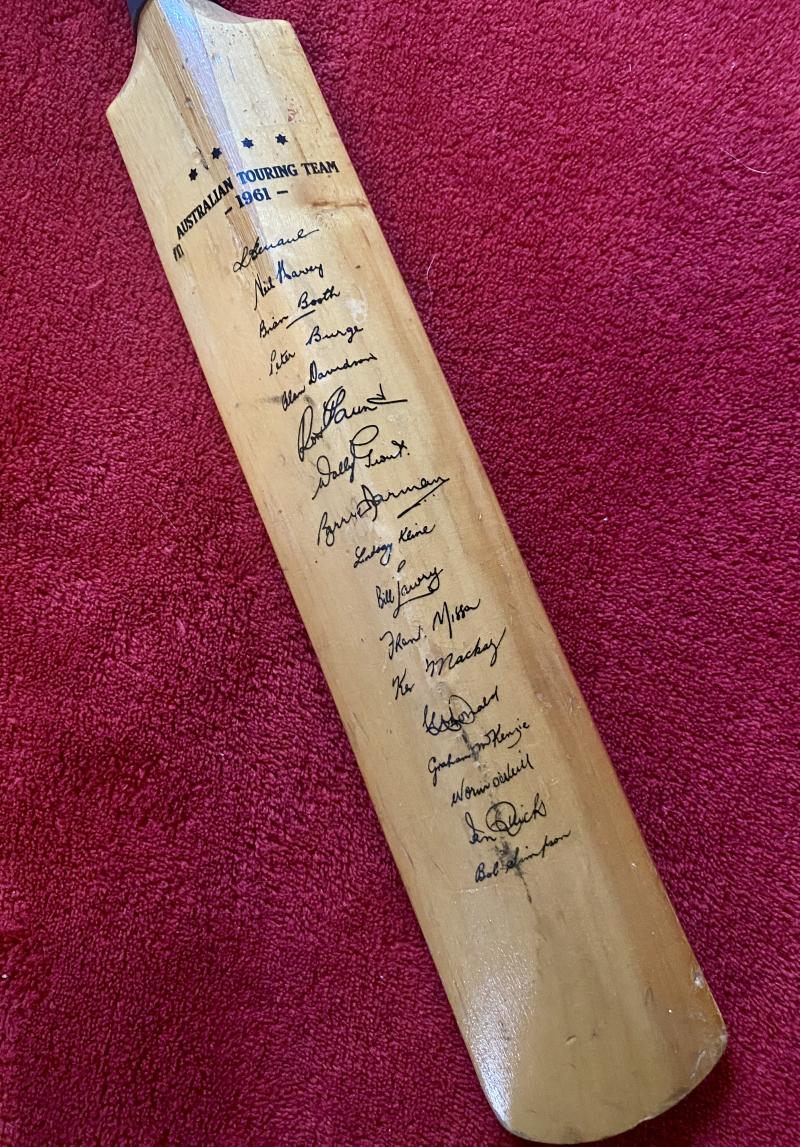 AUSTRALIAN TOURING TEAM
- 1961 -
R Benaud
Neil Harvey
Brian Booth
Peter Burge
Alan Davidson
Ron Gaunt
Wally Grout.
Barry Jarman
Lindsay Kline
Bill Lawry
Frank Misson
Ken Mackay
McDonald
Graham McKenzie
Norm O'Neill
Ian Quick
Bob Simpson